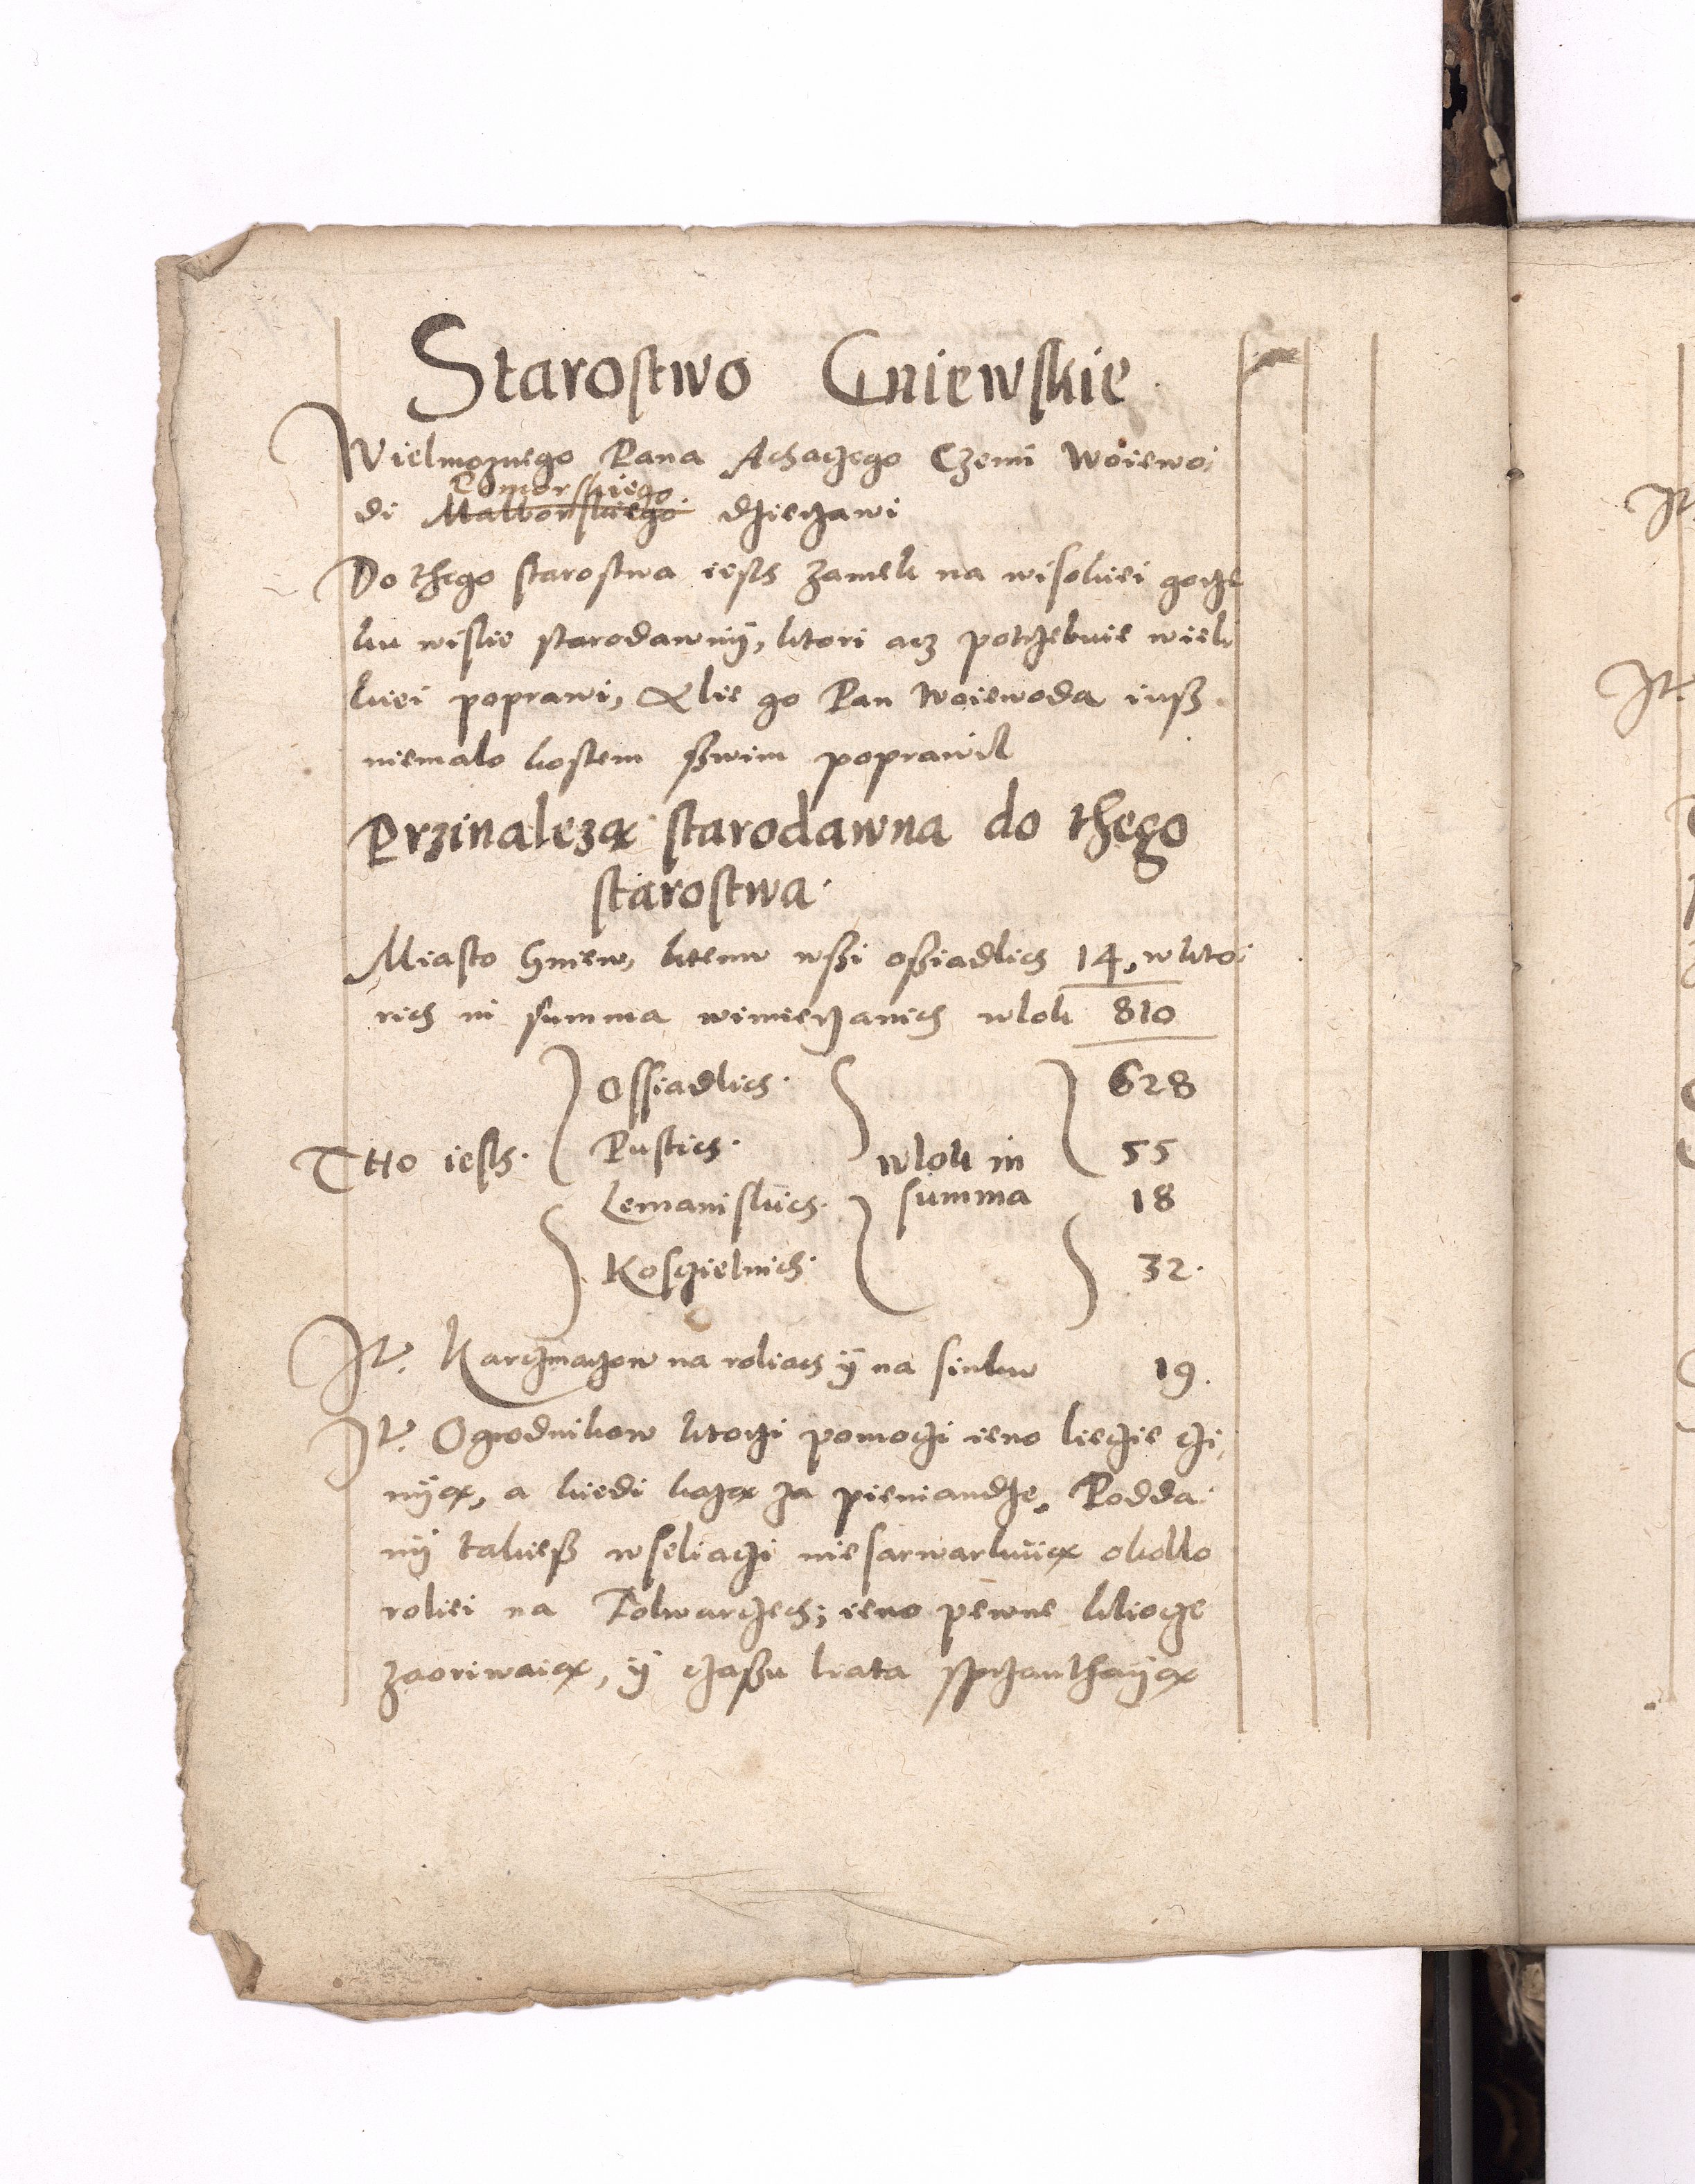 Starostwo Gniewskie
Wielmoznego Pana Achaczego Czemi Woiewo,
Pomorskiego
di Malborskiego dzierzawi
Do thego starostwa iesth zamek na wisokiei gorze
ku wislie starodawnÿ, ktori acz potrzebuie wiel,
kiei poprawi, Alie go Pan Woiewoda iuß
niemalo kostem ßwim poprawil
Przinalezą starodawna do thego
starostwa.
Miasto Gniew, ktemu wßi oßiadlich 14, w kto,
rich in summa wimierzanich wlok 810
Ossiadlich. 628
Ttho iesth. Pustich. wlok in 55
Lemaniskich. summa 18
Koscielnich. 32.
It. Karczmarzow na roliach ÿ na sinku 19.
It. Ogrodnikow ktorzi pomoczi ieno liecie czi,
nÿą, a kiedi każą za pieniandze, Podda,
nÿ takieß wseliaczi nie sarwarkuią okollo
roliei na Folwarczech; ieno pewne klicze
zaoriwaią, ÿ czaßu liata sprzanthaÿą